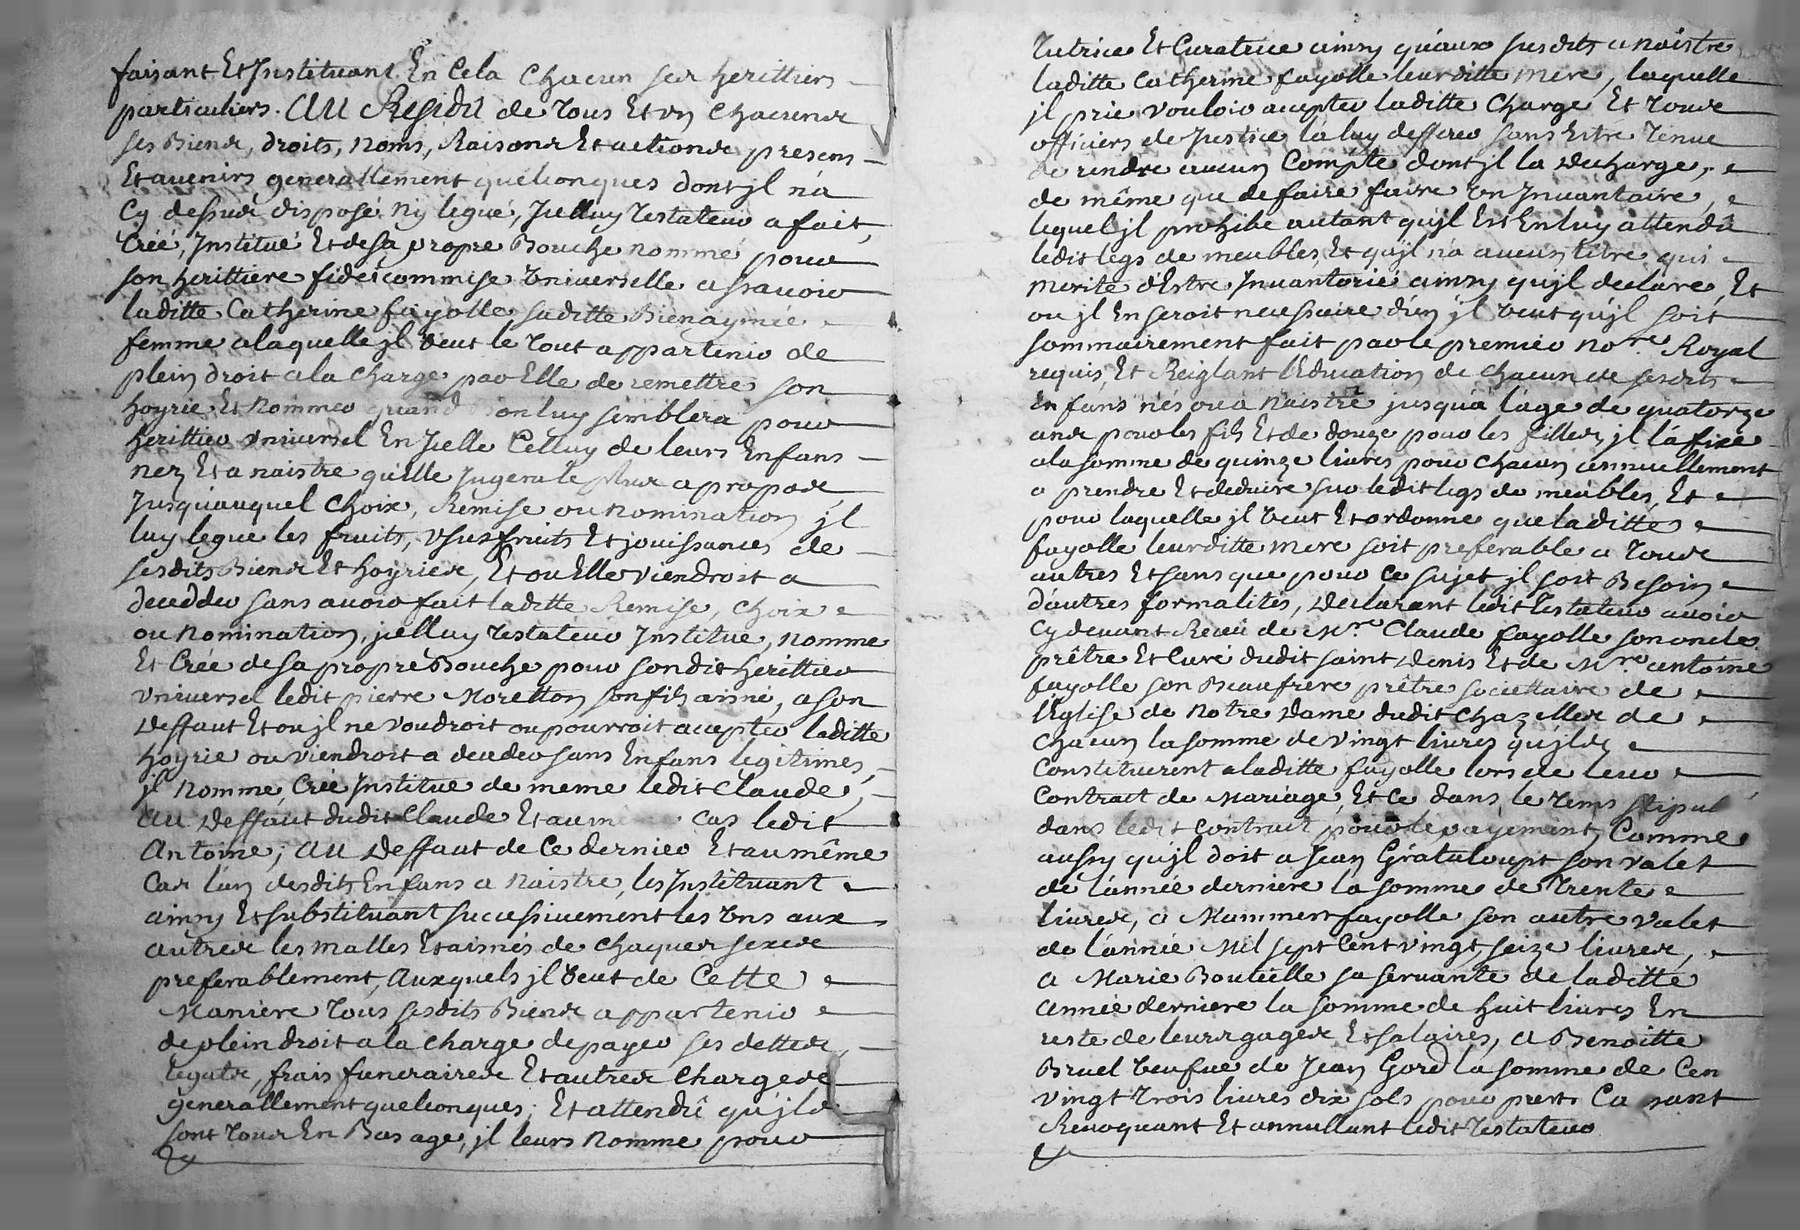 faisant Et Instituant En Cela Chacun ses herittiers
particuliers. AU Residu de Tous Et un Chacuns
ses Biens, droits, Noms, Raisons Et actions presens
Et avenirs generallement quelconques dont jl n'a
Cy dessus disposé ny legué, Jcelluy Testateur a fait,
Créé, Jnstitué Et de sa propre Bouche nommé pour
son herittiere fideicommise Universelle assavoir
laditte Catherine fayolle saditte Bienaymée
femme a laquelle jl Veut le Tout appartenir de
plein droit a la Charge par Elle de remettre son
hoyrie Et Nommer quand bon luy semblera pour
herittier universel En Jcelle Celluy de leurs Enfans
nez Et a naistre qu'elle Jugera le plus a propos
Jusquauquel Choix, Remise ou nomination jl
luy legue les fruits, Usufruits Et jouissances de
sesdits Biens Et hoyries, Et ou Elle viendroit a
decedder sans avoir fait laditte Remise, Choix
ou Nomination, jcelluy Testateur Jnstitue, nomme
Et Crée de sa propre Bouche pour sondit herittier
Universel ledit pierre Moretton son fils ainné, a son
Deffaut Et ou jl ne voudroit ou pourroit accepter laditte
hoyrie ou viendroit a deceder sans Enfans legitimes,
jl Nomme, Crée Jnstitue de meme ledit Claude,
AU Deffaut dudit Claude Et au meme cas ledit
Antoine; AU Deffaut de Ce dernier Et au même
Cas l'un desdits Enfans a Naistre, les Jnstituant
ainsy Et substituant successivement les Uns aux
autres les malles Et aisnés de chaques sexes
preferablement, Auxquels jl Veut de Cette
Maniere Tous sesdits Biens appartenir
de plein droit a la charge de payer ses dettes
legats, frais funeraires Et autres charges
generallement quelconques; Et attendû qu'jls
sont Tous En Bas age, jl leurs Nomme pour
Tutrice Et Curatrice ainsy qu'aux susdits a Naistre
laditte Catherine fayolle leurditte Mere, laquelle
jl prie vouloir accepter laditte Charge Et Tous
officiers de Justice la luy defferer sans Estre Tenue
de rendre aucun Compte dont jl la decharge,
de même que de faire faire Un Jnvantaire,
lequel jl prohibe autant qu'jl Est En luy attendû
ledit legs de meubles, Et qu'jl n'a aucun titre qui
merite d'Estre Jnvantorié ainsy qu'jl declare, Et
ou jl En seroit necessaire d'un jl Veut qu'jl soit
sommairement fait par le premier No.re Royal
requis, Et Reiglant l'Education de chacun de sesdits
Enfans nés ou a Naistre jusqu'a l'age de quatorze
ans pour les fils Et de douze pour les filles, jl la fixe
a la somme de quinze livres pour chacun annuellement
a prendre Et deduire sur ledit legs de meubles, Et
pour laquelle jl Veut Et ordonne que laditte
fayolle leurditte Mere soit preferable a Tous
autres Et sans que pour Ce sujet jl soit Besoin
d'autres formalités, Declarant ledit Testateur avoir
Cy devant Receu de M.re Claude fayolle son oncle
prêtre Et Curé dudit saint Denis Et de M.re antoine
fayolle son Beaufrere prêtre societtaire de
l'Eglise de Notre Dame dudit Chazelles de
Chacun la somme de Vingt livres qu'jls
Constituerent a laditte fayolle lors de leur
Contrait de Mariage, Et Ce dans le Tems stipul
dans ledit Contrait pour le payement, Comme
aussy qu'jl doit a Jean Grataloupt son Valet
de l'année derniere la somme de Trente
livres, a Mammert fayolle son autre Valet
de l'année Mil sept Cent vingt seize livres,
a Marie Boutielle sa servante de laditte
année derniere la somme de huit livres En
reste de leurs gages Et salaires, a Benoitte
Bruel Veufue de Jean Gord la somme de Cen
Vingt Trois livres dix sols pour prest. Ca sant
Revoquant Et annullant ledit Testateur